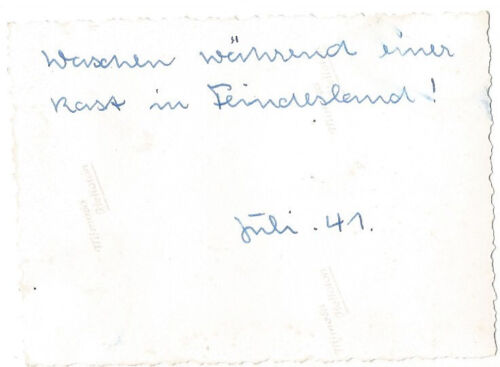 Waschen während einer
Rast in Feindesland!
Juli. 41.